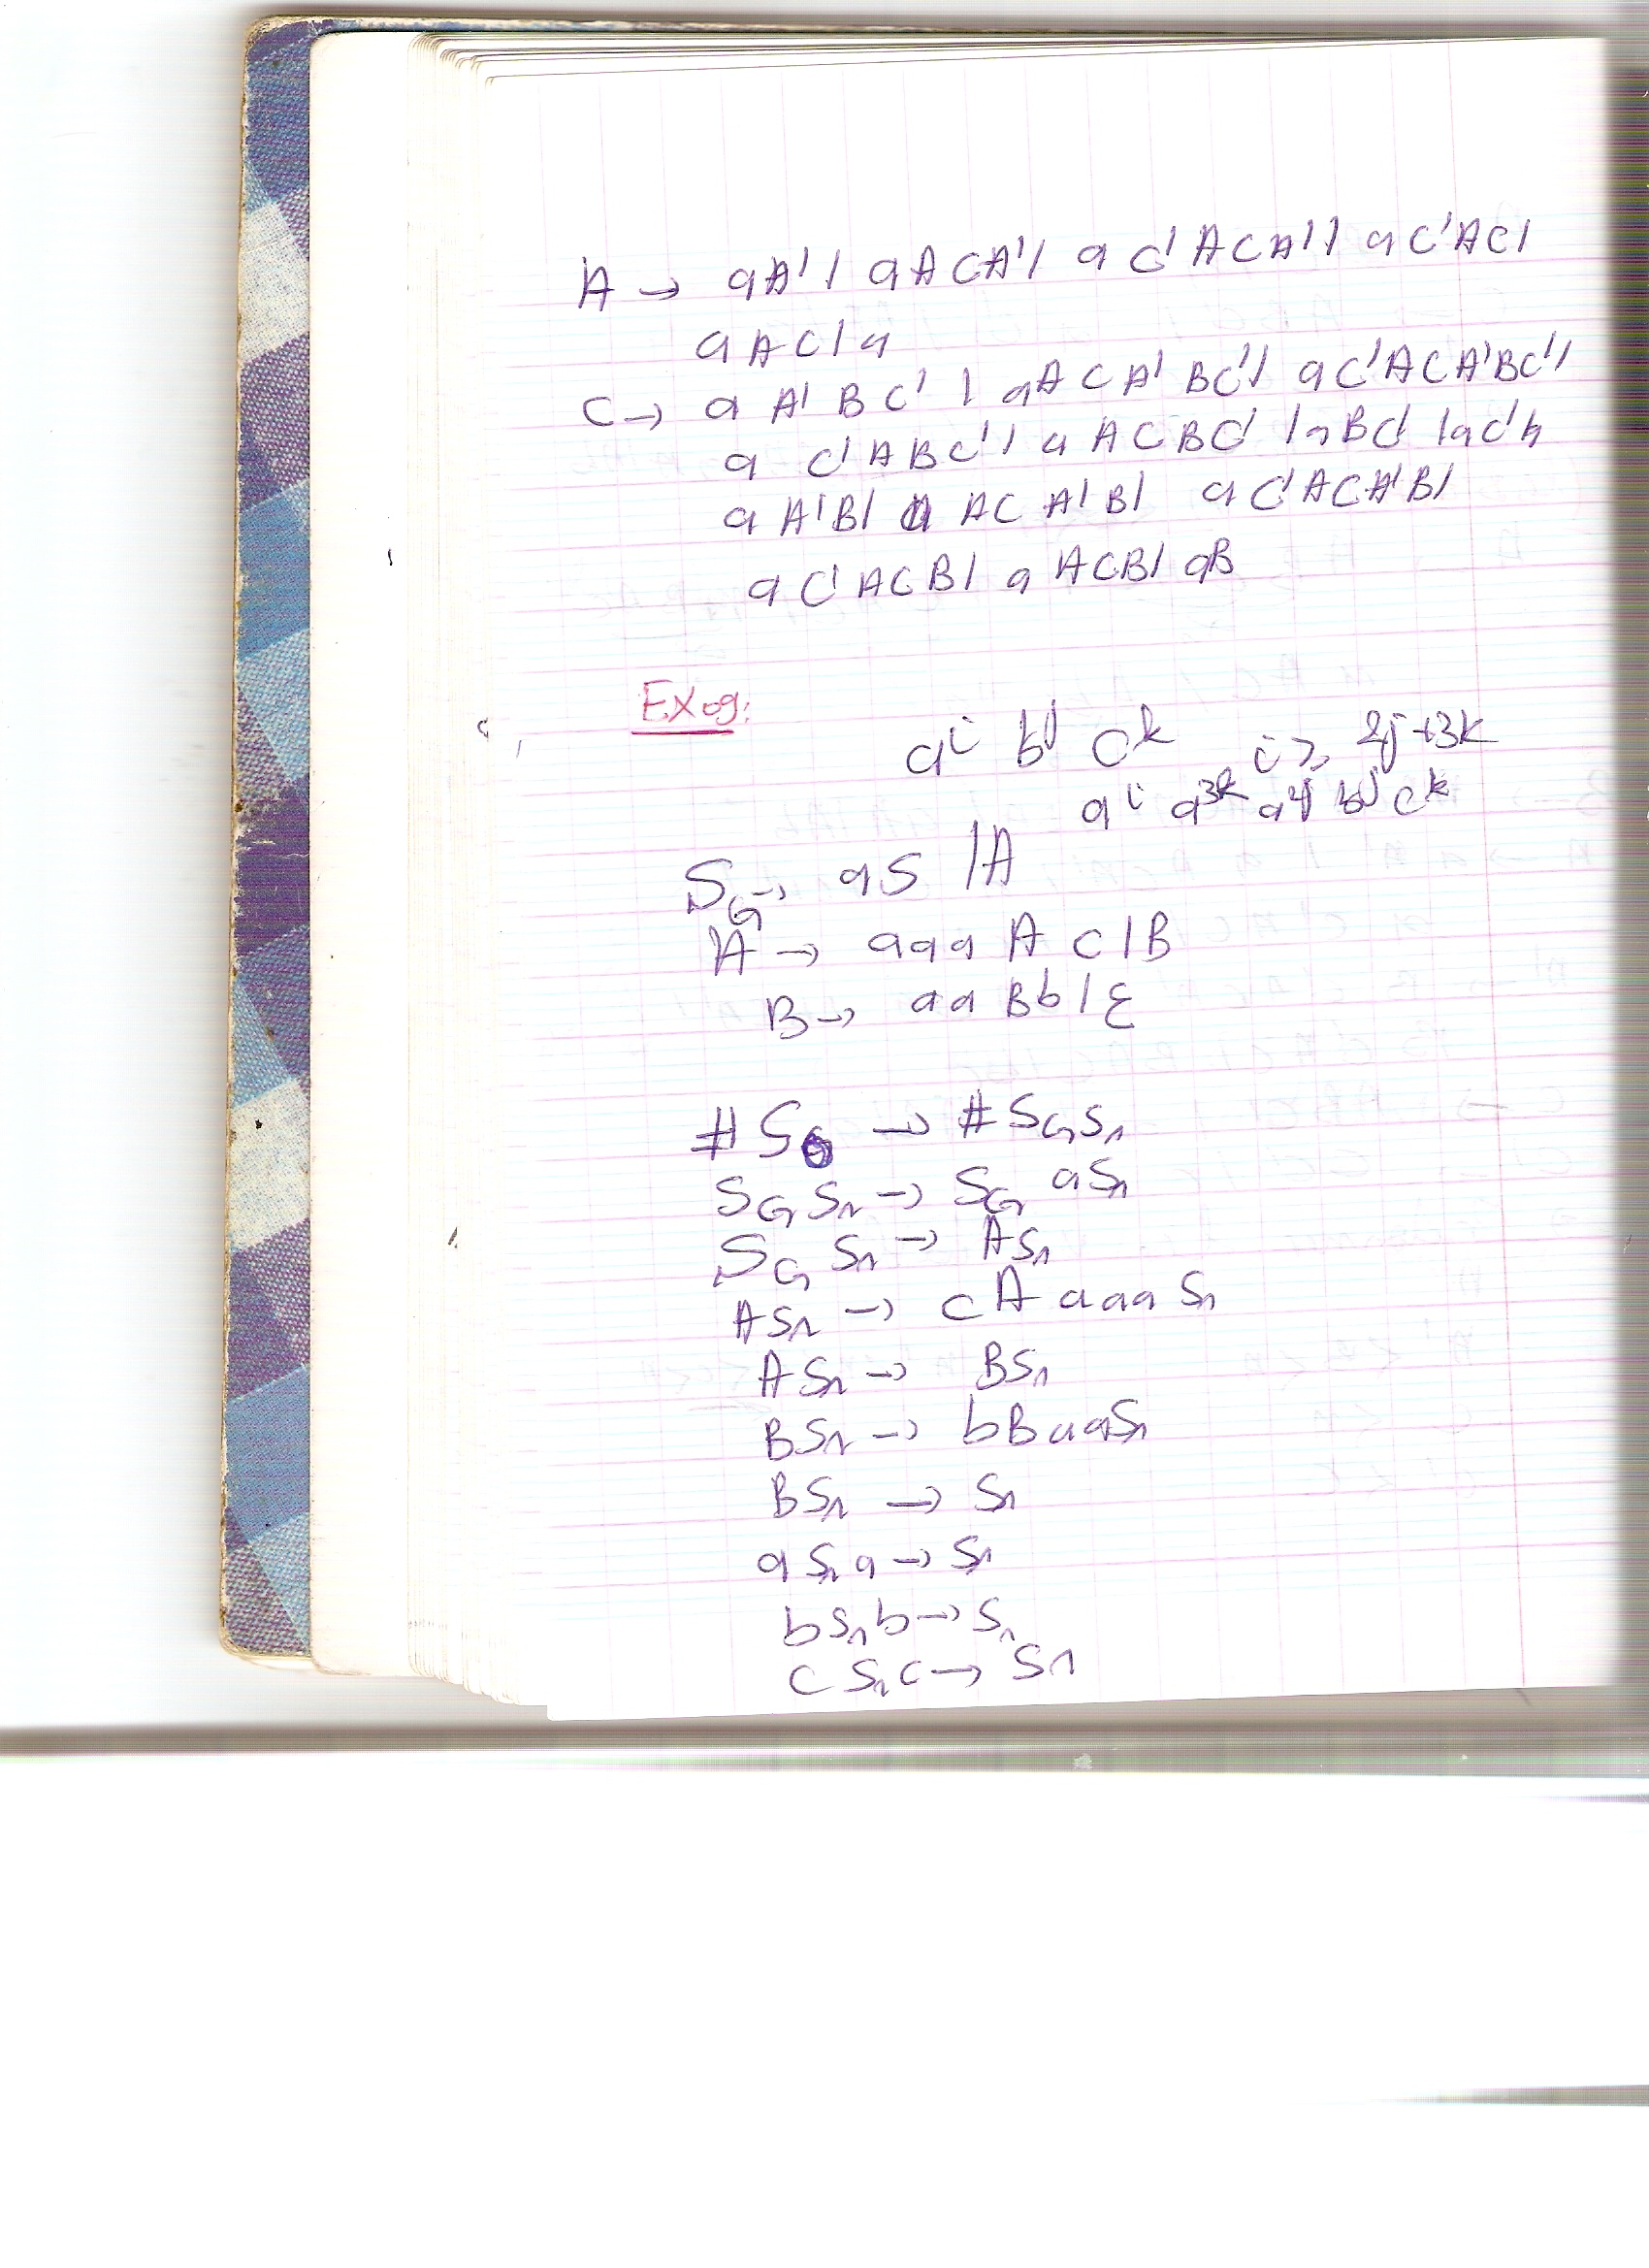 A → aA' | aACA' | aC'ACA' | aC'AC |
aAC | a
C → aA'BC' | aACA'BC' | aC'ACA'BC' |
aC'ABC' | aACBC' | aBC' | aC'h
aA'B | aACA'B | aC'ACA'B |
aC'ACB | aACB | aB
EX09:
aⁱ bʲ cᵏ i ≥ 2j+3k
aⁱ a³ᵏ a²ʲ bʲ cᵏ
S_G → aS | A
A → aaaAc | B
B → aaBb | ε
#S_G → #S_GS₁
S_GS₁ → S_G aS₁
S_G S₁ → AS₁
AS₁ → cAaaaS₁
AS₁ → BS₁
BS₁ → bBaaS₁
BS₁ → S₁
aS₁a → S₁
bS₁b → S₁
cS₁c → S₁